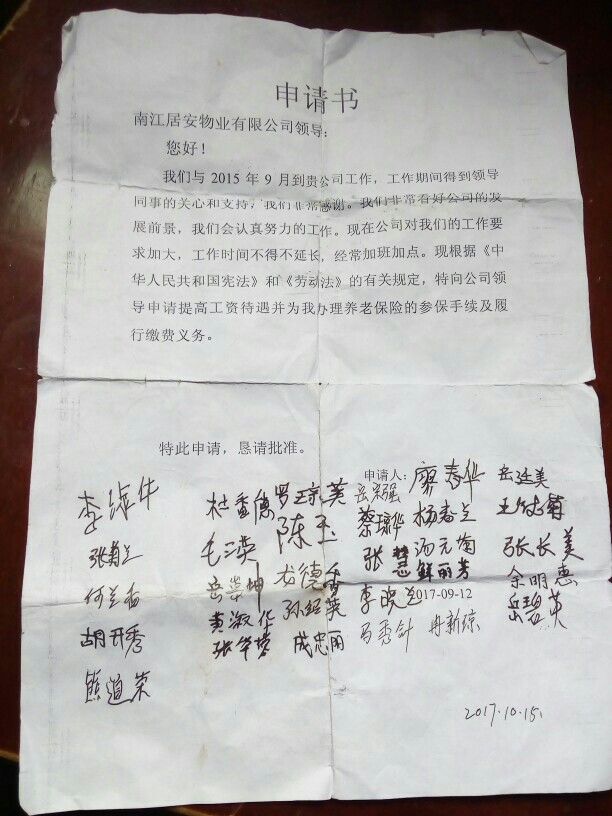 申请书
南江居安物业有限公司领导：
您好！
我们与 2015 年 9 月到贵公司工作，工作期间得到领导
同事的关心和支持，我们非常感谢。我们非常看好公司的发
展前景，我们会认真努力的工作。现在公司对我们的工作要
求加大，工作时间不得不延长，经常加班加点。现根据《中
华人民共和国宪法》和《劳动法》的有关规定，特向公司领
导申请提高工资待遇并为我办理养老保险的参保手续及履
行缴费义务。
特此申请，恳请批准。
申请人：廖春华 岳廷美
杜香德 罗琼英 岳荣强
李 蔡琼华 杨春兰 王 菊
张菊兰 毛瑛 陈玉
张慧 汤元菊 张长美
何兰香 岳崇坤 龙德香 鲜丽芳 余明惠
黄淑华 孙绍英 李 兰 2017-09-12 岳碧英
胡开秀 张华 成忠丽 马秀针 冉新琼
熊道荣
2017.10.15.